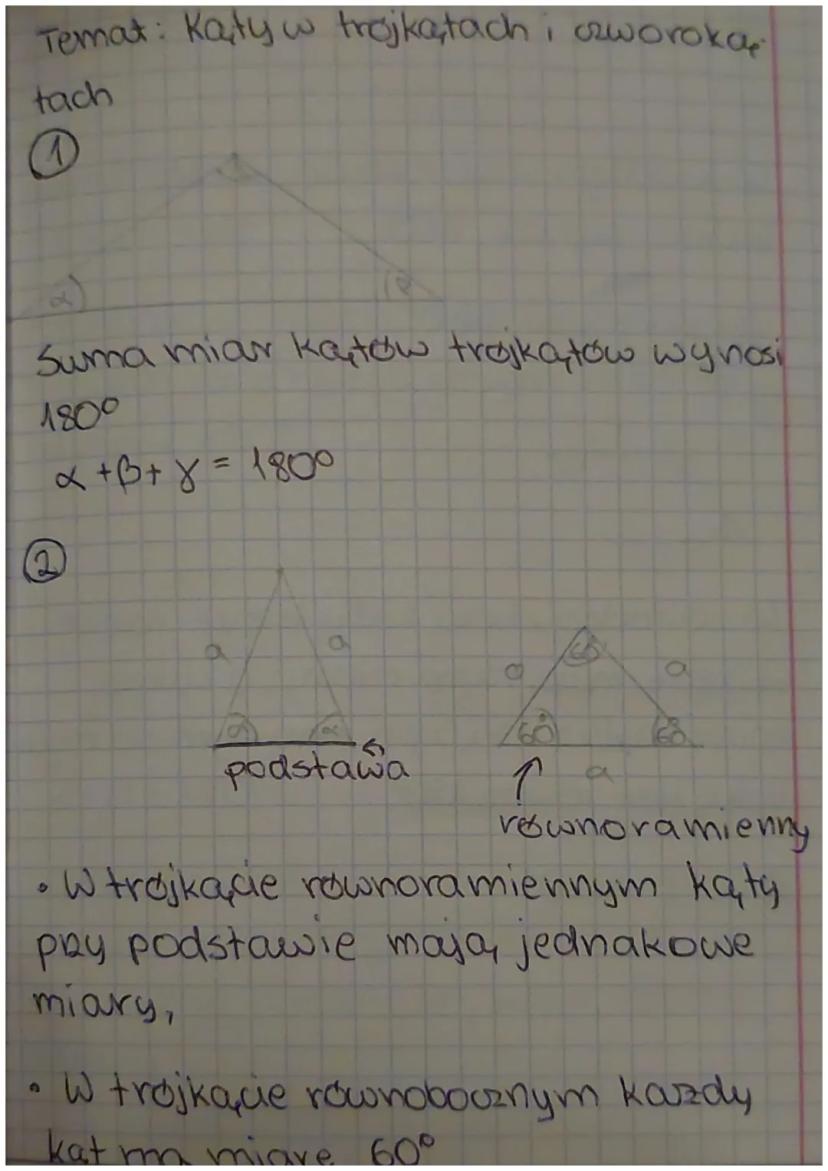 Temat: Kąty w trójkątach i czworoką-
tach
1
α β
Suma miar kątów trójkątów wynosi
180°
α + β + γ = 180°
2
a a
60°
a a
α α
60° 60°
podstawa
a
równoramienny
• W trójkącie równoramiennym kąty
przy podstawie mają jednakowe
miary,
• W trójkącie równobocznym każdy
kąt ma miarę 60°